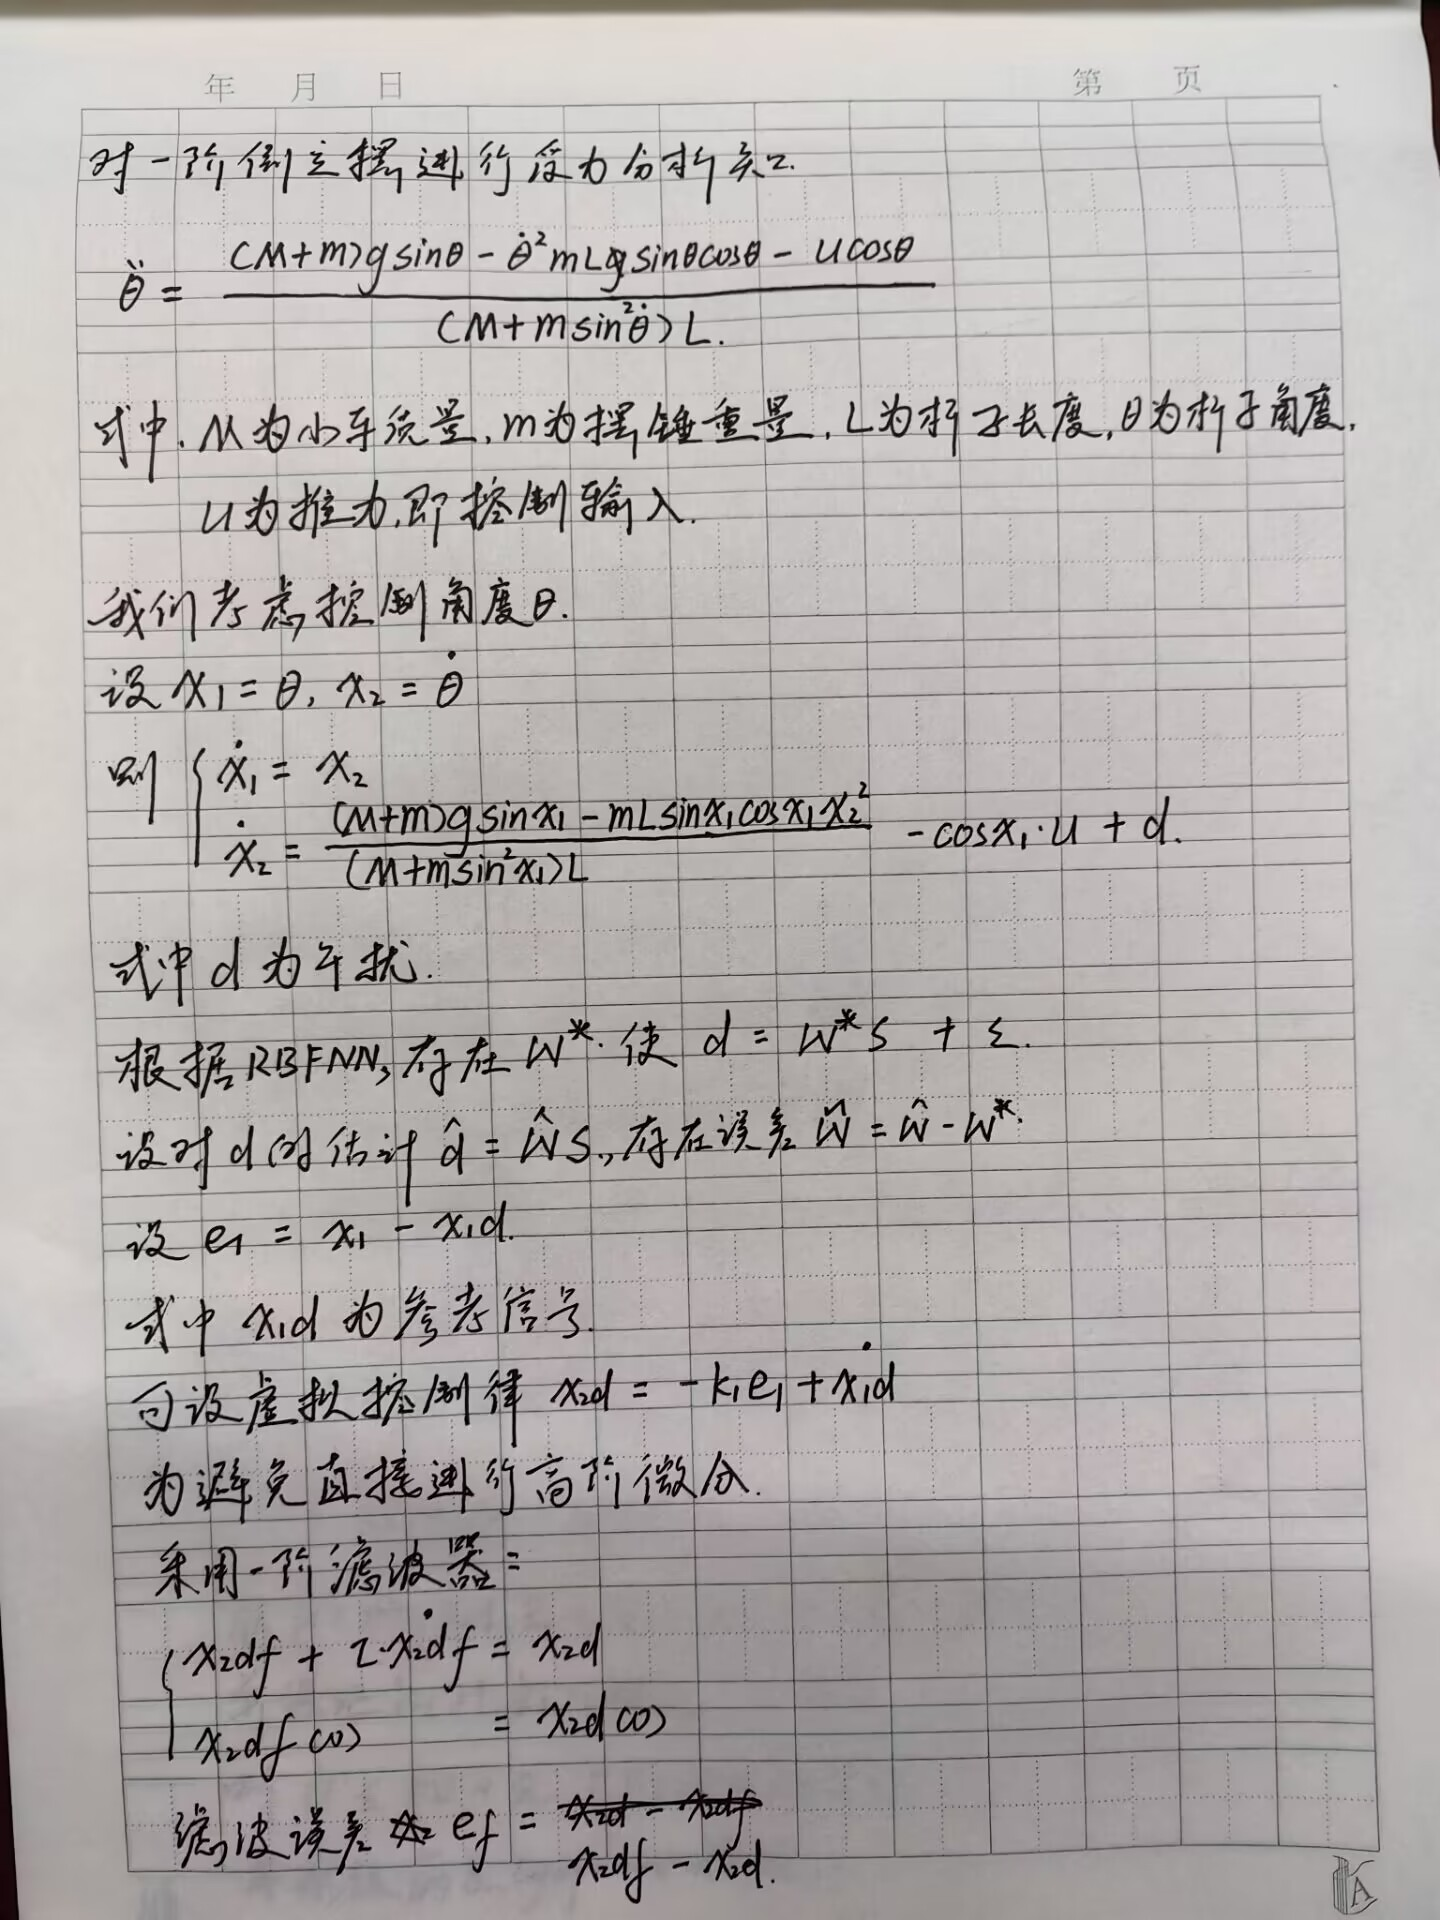 年 月 日 第 页
对一阶倒立摆进行受力分析知:
θ̈ = ((M+m)gsinθ - θ̇²mLsinθcosθ - ucosθ) / ((M+msin²θ̇)L.
式中. M为小车质量, m为摆锤重量, L为杆子长度, θ为杆子角度,
u为推力,即控制输入.
我们考虑控制角度θ.
设 x₁ = θ, x₂ = θ̇
则 { ẋ₁ = x₂
ẋ₂ = ((M+m)gsinx₁ - mLsinx₁cosx₁x₂²) / ((M+msin²x₁)L) - cosx₁·u + d.
式中 d 为干扰.
根据RBFNN, 存在 W*. 使 d = W*S + ε.
设对 d 的估计 d̂ = ŴS, 存在误差 W̃ = Ŵ - W*.
设 e₁ = x₁ - x₁d.
式中 x₁d 为参考信号.
可设虚拟控制律 x₂d = -k₁e₁ + ẋ₁d
为避免直接进行高阶微分.
采用一阶滤波器:
{ x₂df + τ·ẋ₂df = x₂d
x₂df(0) = x₂d(0)
滤波误差 e_f = x₂d - x₂df
x₂df - x₂d.
A